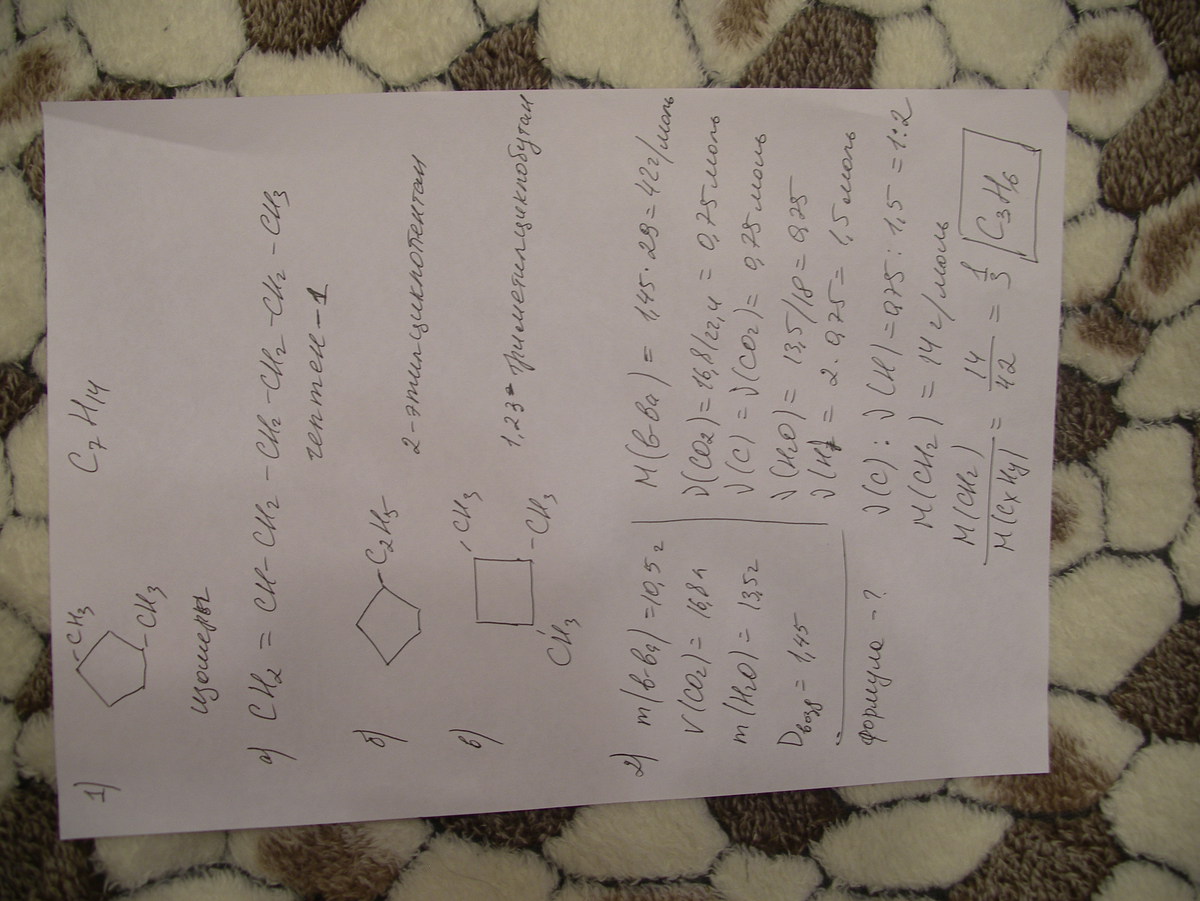 1)
CH3
-CH3
C7H14
изомеры
а) CH2 = CH-CH2-CH2-CH2-CH2-CH3
гептен-1
б)
-C2H5
2-этилциклопентан
в)
CH3
-CH3
CH3
1,23-триметилциклобутан
2) m(в-ва)=10,5г
V(CO2)=16,8л
m(H2O)=13,5г
Dвозд=1,45
формула -?
M(в-ва) = 1,45·29=42г/моль
ν(CO2)=16,8/22,4 = 0,75моль
ν(C)=ν(CO2)=0,75моль
ν(H2O)=13,5/18=0,75
ν(H)=2·0,75=1,5моль
ν(C):ν(H)=0,75:1,5=1:2
M(CH2)=14г/моль
M(CH2)/M(CxHy) = 14/42 = 1/3 C3H6